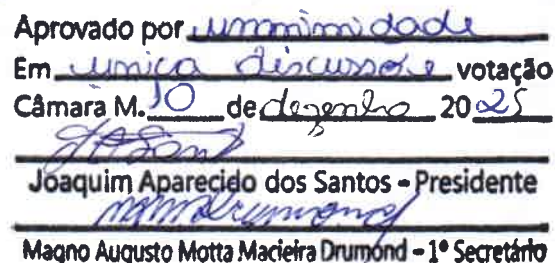 Aprovado por unanimidade
Em única discussão e votação
Câmara M. 10 de dezembro 2025
Joaquim Aparecido dos Santos - Presidente
Magno Augusto Motta Macieira Drumond - 1º Secretário